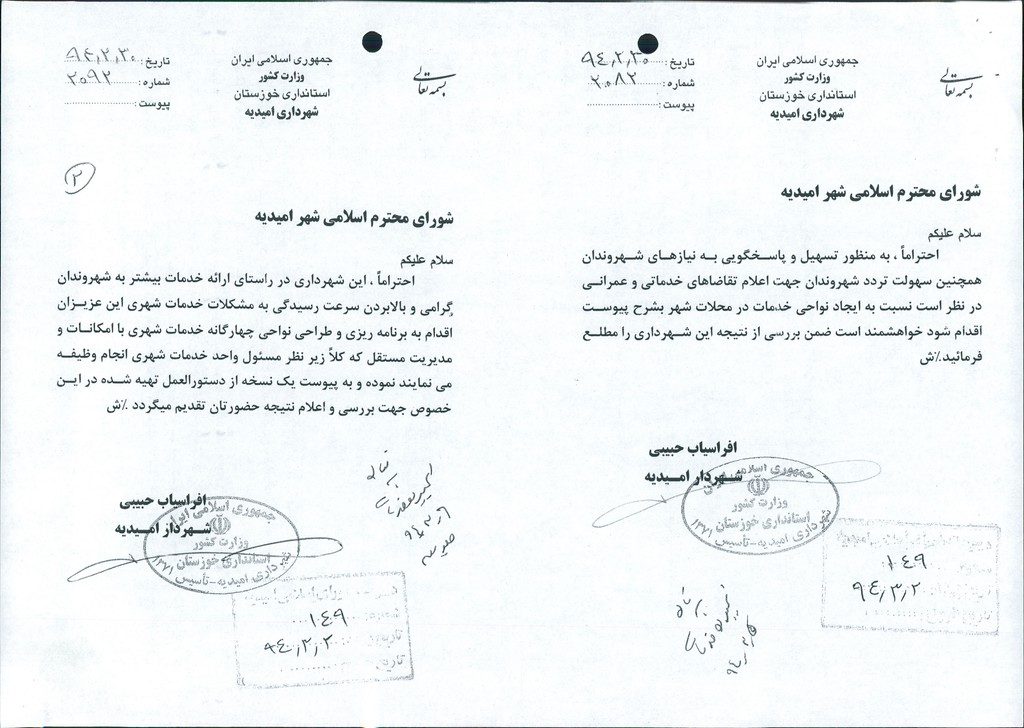 بسمه تعالی
جمهوری اسلامی ایران
وزارت کشور
استانداری خوزستان
شهرداری امیدیه
تاریخ: ۹۴,۲,۳۰
شماره: ۲۰۸۲
پیوست:
شورای محترم اسلامی شهر امیدیه
سلام علیکم
احتراماً ، به منظور تسهیل و پاسخگویی به نیازهای شهروندان
همچنین سهولت تردد شهروندان جهت اعلام تقاضاهای خدماتی و عمرانی
در نظر است نسبت به ایجاد نواحی خدمات در محلات شهر بشرح پیوست
اقدام شود خواهشمند است ضمن بررسی از نتیجه این شهرداری را مطلع
فرمائید.٪ش
افراسیاب حبیبی
شهردار امیدیه
جمهوری اسلامی ایران
وزارت کشور
استانداری خوزستان
شهرداری امیدیه-تأسیس ۱۳۷۱
۱۰۴۹
۹۴,۳,۲
بسمه تعالی
جمهوری اسلامی ایران
وزارت کشور
استانداری خوزستان
شهرداری امیدیه
تاریخ: ۹۴,۲,۳۰
شماره: ۲۰۹۲
پیوست:
۲
شورای محترم اسلامی شهر امیدیه
سلام علیکم
احتراماً ، این شهرداری در راستای ارائه خدمات بیشتر به شهروندان
گرامی و بالابردن سرعت رسیدگی به مشکلات خدمات شهری این عزیزان
اقدام به برنامه ریزی و طراحی نواحی چهارگانه خدمات شهری با امکانات و
مدیریت مستقل که کلاً زیر نظر مسئول واحد خدمات شهری انجام وظیفه
می نمایند نموده و به پیوست یک نسخه از دستورالعمل تهیه شده در این
خصوص جهت بررسی و اعلام نتیجه حضورتان تقدیم میگردد .٪ش
افراسیاب حبیبی
شهردار امیدیه
جمهوری اسلامی ایران
وزارت کشور
استانداری خوزستان
شهرداری امیدیه-تأسیس ۱۳۷۱
۱۰۴۹
۹۴,۳,۲